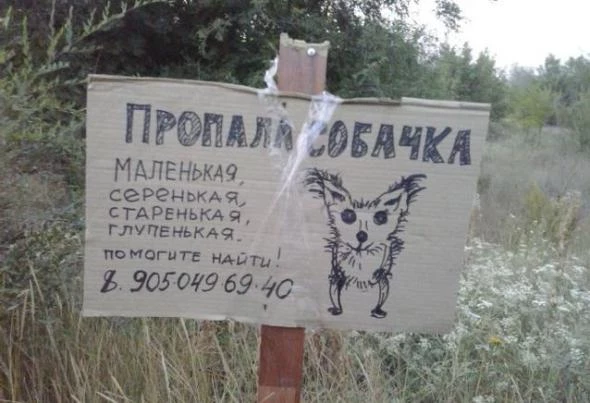 ПРОПАЛА СОБАЧКА
МАЛЕНЬКАЯ,
СЕРЕНЬКАЯ,
СТАРЕНЬКАЯ,
ГЛУПЕНЬКАЯ.
ПОМОГИТЕ НАЙТИ!
8.905·049·69·40